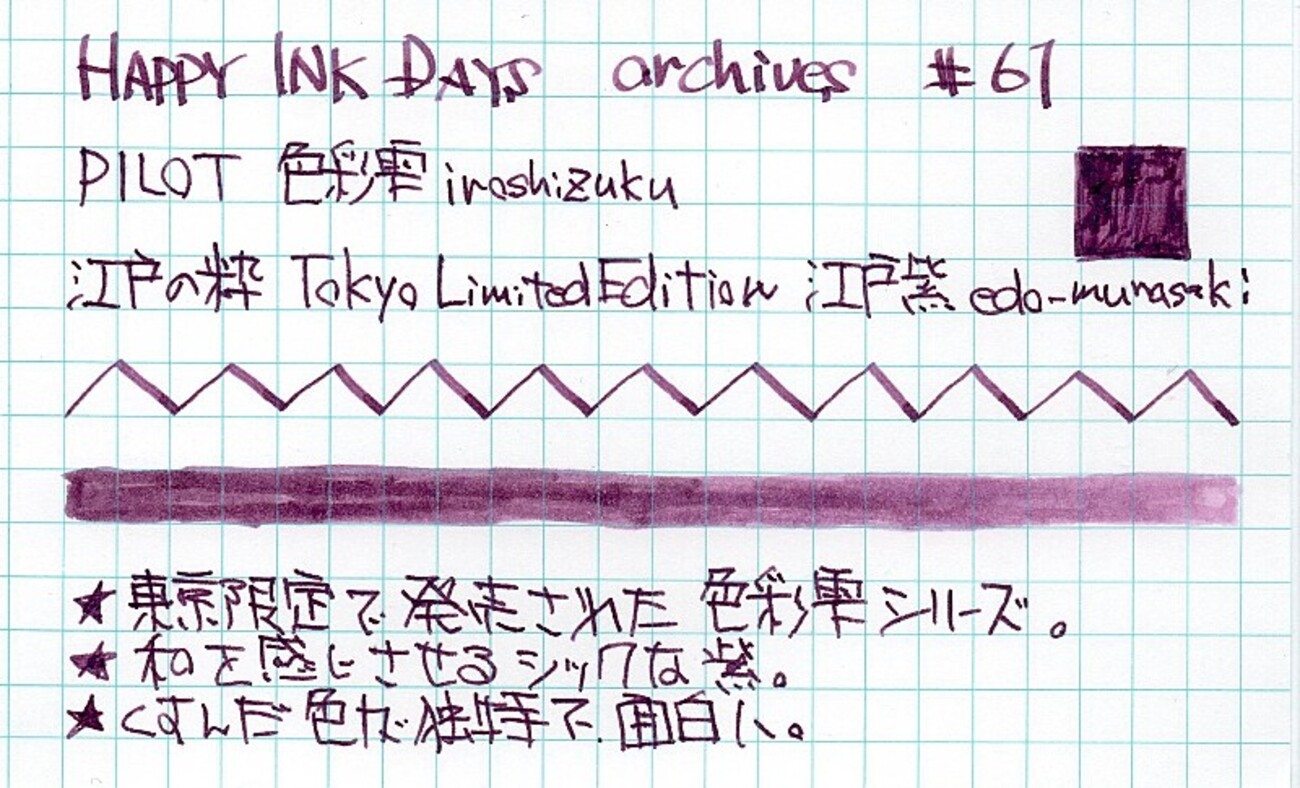 HAPPY INK DAYS archives #61
PILOT 色彩雫 iroshizuku
江戸の粋 Tokyo Limited Edition 江戸紫 edo-murasaki
★東京限定で発売された色彩雫シリーズ。
★和を感じさせるシックな紫。
★くすんだ色が独特で面白い。